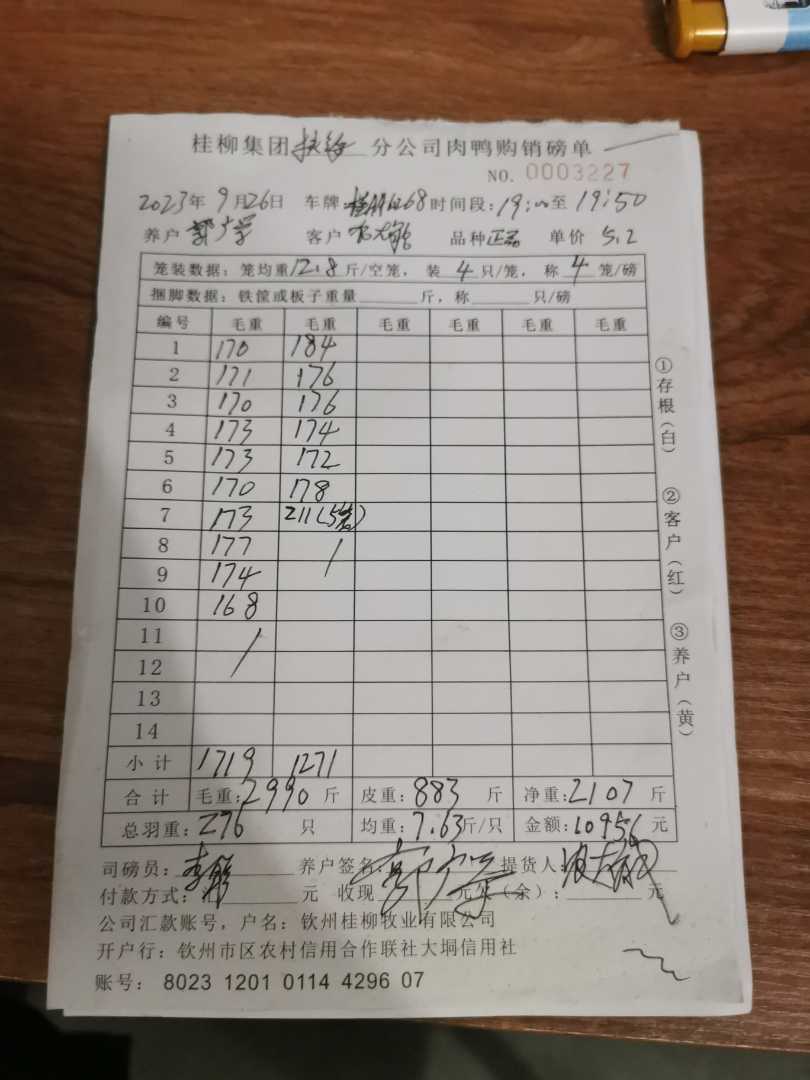 桂柳集团 分公司肉鸭购销磅单
NO. 0003227
2023年 9月26日 车牌 时间段:19:00至 19:50
养户 郭广学 客户 品种 正品 单价 5.2
笼装数据:笼均重12.8斤/空笼,装 4 只/笼,称 4 笼/磅
捆脚数据:铁筐或板子重量 斤,称 只/磅
编号 毛重 毛重 毛重 毛重 毛重 毛重
1 170 184
2 171 176
3 170 176
4 173 174
5 173 172
6 170 178
7 173 211(5笼)
8 177 /
9 174
10 168
11 /
12
13
14
小计 1719 1271
合计 毛重:2990 斤 皮重:883 斤 净重:2107 斤
总羽重:276 只 均重:7.63斤/只 金额:10956 元
司磅员: 养户签名:郭广学 提货人:
付款方式: 元 收现 元欠(余): 元
公司汇款账号,户名:钦州桂柳牧业有限公司
开户行:钦州市区农村信用合作联社大垌信用社
账号: 8023 1201 0114 4296 07
①存根(白)
②客户(红)
③养户(黄)